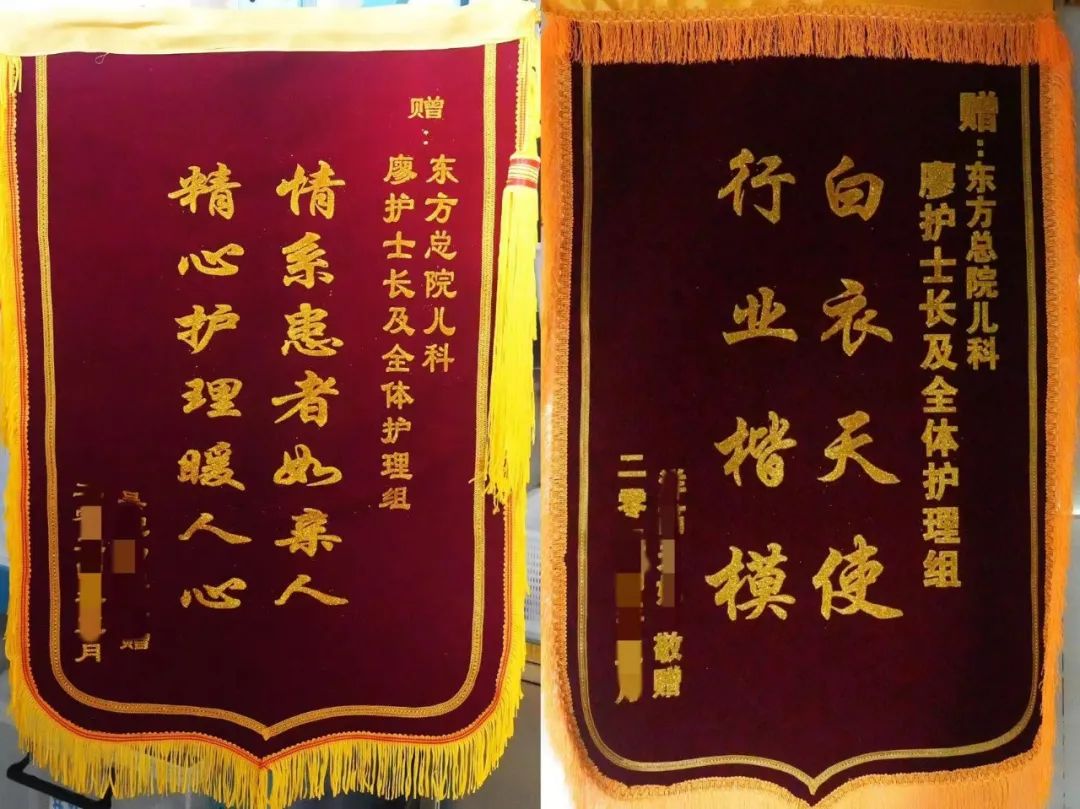 赠：
东方总院儿科
廖护士长及全体护理组
情系患者如亲人
精心护理暖人心
赠
月
赠：东方总院儿科
廖护士长及全体护理组
白衣天使
行业楷模
敬赠
二零